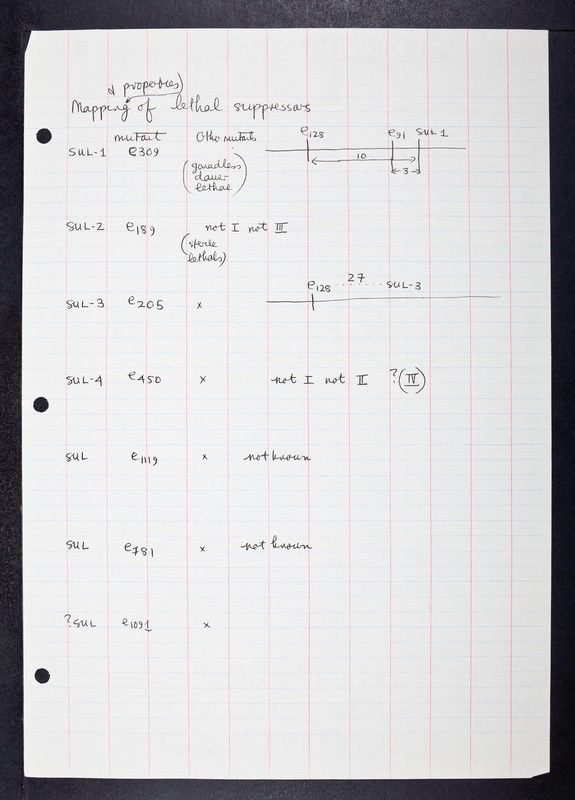 & properties)
Mapping of lethal suppressors
mutant Other mutants
SUL-1 e309 e128 e91 SUL1
(gonadless
dauer
lethal)
10
3
SUL-2 e189 not I not III
(sterile
lethals)
SUL-3 e205 x e128 ... 27 ... SUL-3
SUL-4 e450 x not I not II ? (IV)
SUL e1119 x not known
SUL e781 x not known
? SUL e1091 x